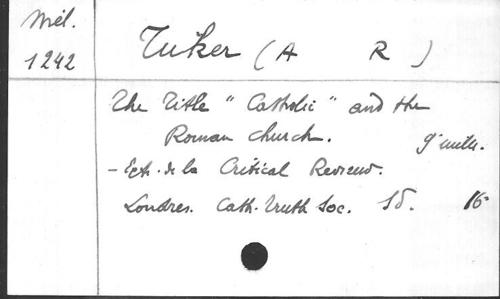 Mél.
1242
Tuker (A R)
The Title "Catholic" and the
Roman Church.
- Extr. de la Critical Review.
Londres. Cath. Truth Soc. S d. 16°